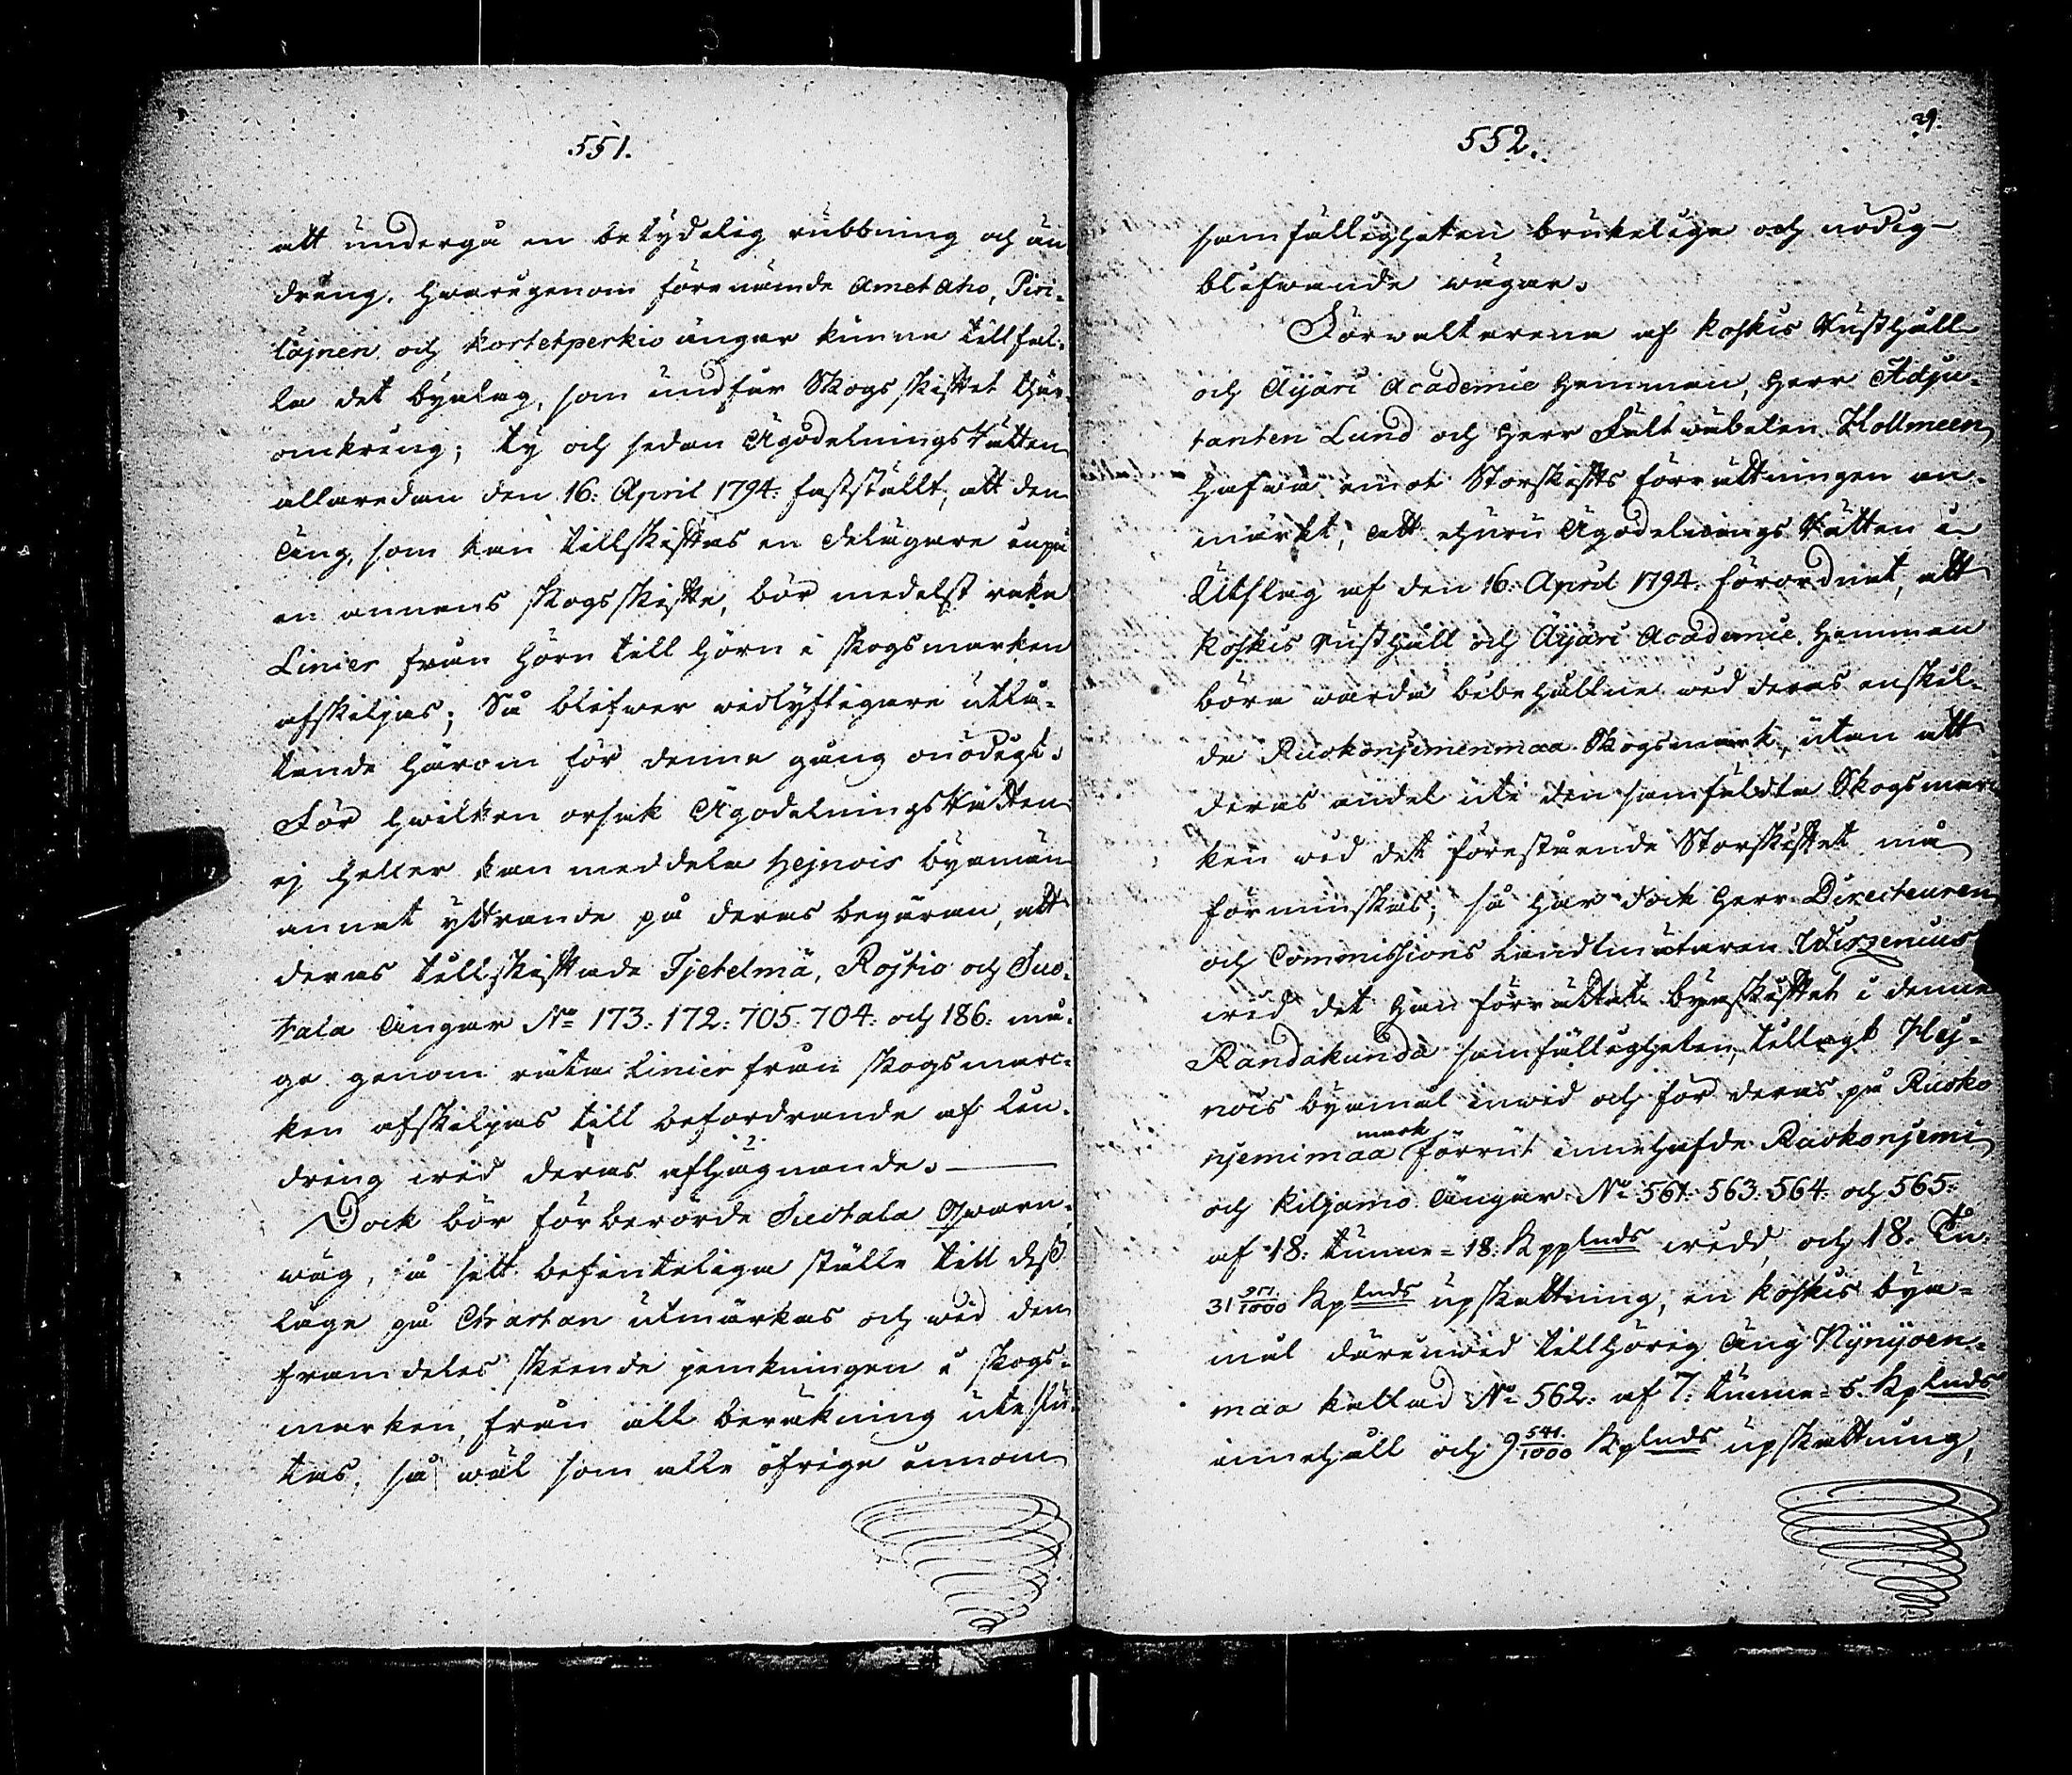 551.
att undergå en betydelig rubbning och än
dring, hwarigenom förenämde Ametaho, Piri-
läjnen och Kortetperkio ängar kunna tillfal-
la det byalag, som undfår Skogsskiftet thär-
omkring; ty och sedan ÄgodelningsRätten
allaredan den 16: April 1794: fastställt, att den
äng, som kan tillskiftas en delägare uppå
en annans skogsskifte, bör medelst raka
Linier från hörn till hörn i skogsmarken
afskiljas; Så blifwer widlyftigare utlå-
tande härom för denna gång onödigt.
För hwilken orsak ÄgodelningsRätten
ej heller kan meddela Hejnois byamän
annat yttrande på deras begäran, att
deras tillskiftade Tjetelmä, Rojtio och Suo-
tala ängar No 173: 172: 705: 704: och 186: må-
ge genom räta Linier från skogsmar-
ken afskiljas till befordrande af lin-
dring wid deras afhägnande.
Dock bör förberörde Suotala Qwarn-
wäg, å sitt befinteliga ställe till dess
läge på Chartan utmärkas och wid den
framdeles skeende jemkningen i skogs-
marken, från all beräkning uteslu-
tas, så wäl som alla öfriga innom
552.
29.
samfälligheten brukeliga och nödig
blifwande wägar.
Förwaltarena af Koskis Rusthåll
och Äijäri Academie Hemman, Herr Adju-
tanten Lund och Herr Fältwäbelen Hollmeen
hafwa emot Storskifts förrättningen an-
märkt, att ehuru ÄgodelningsRätten i
Utslag af den 16: April 1794. förordnat, att
Koskis Rusthåll och Äijäri Academie Hemman
böra warda bibehållne wid deras enskil-
da Ruokonjemenmaa Skogsmark, utan att
deras andel uti den samfäldta Skogsmar-
ken wid det förestående Storskiftet må
förminskas; så har dock Herr Directeuren
och Commissions Landtmätaren Wirzenius
wid det han förrättat byaskiftet i denna
Randakunda samfälligheten, tillagt Hej-
nois byamål inwid och för deras på Ruoko
njemimaa mark förrut innehafde Raokonjemi
och Kiljamo ängar No 561: 563: 564: och 565:
af 18: tunne = 18: Kpplnds widd, och 18. Tu.
31 971/1000 Kplnds upskattning, en Koskis bya-
mål därinwid tillhörig äng Nynyoen-
maa kallad No 562: af 7: tunne = 5. Kplnds
innehåll och 9 541/1000 Kplnds upskattning,